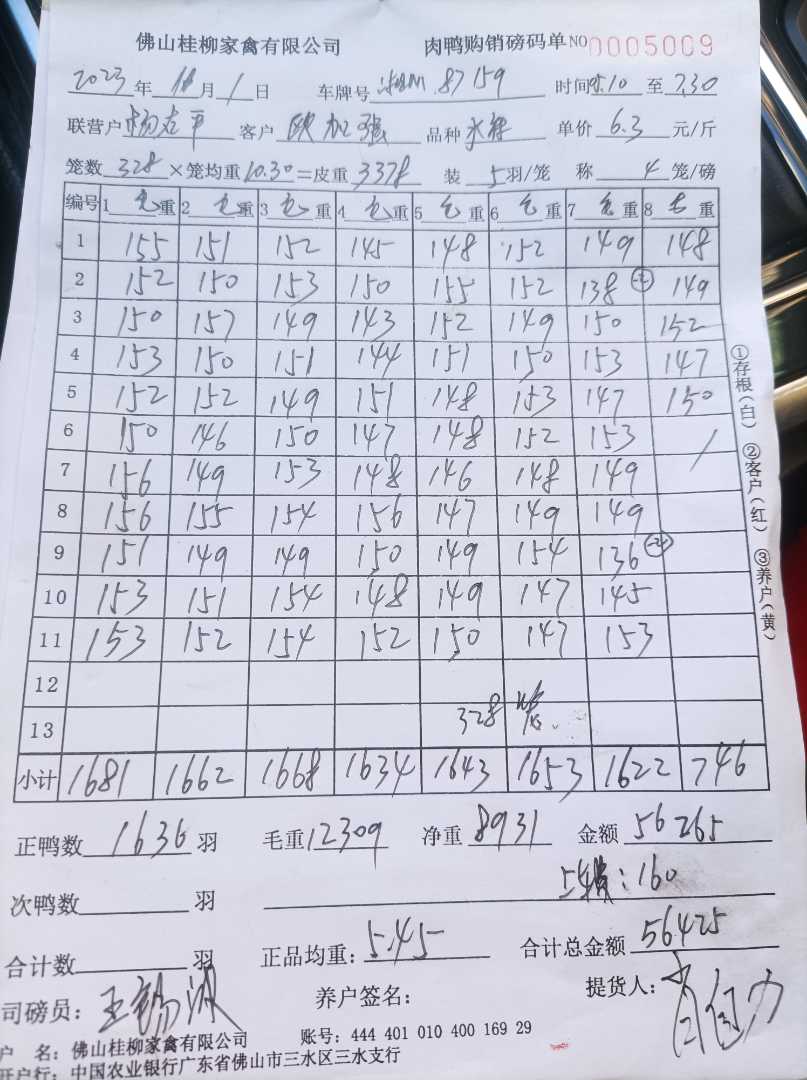 佛山桂柳家禽有限公司 肉鸭购销磅码单 NO 0005009
2023年10月1日 车牌号 87159 时间 至 7.30
联营户 杨志平 客户 欧加强 品种 水鸭 单价 6.3 元/斤
笼数 328 ×笼均重 10.30 =皮重 3378 装 5 羽/笼 称 4 笼/磅
编号 1 毛重 2 毛重 3 毛重 4 毛重 5 毛重 6 毛重 7 毛重 8 毛重
1 155 151 152 145 148 152 149 148
2 152 150 153 150 155 152 138 149
3 150 157 149 143 152 149 150 152
4 153 150 151 144 151 150 153 147
5 152 152 149 151 148 153 147 150
6 150 146 150 147 148 152 153 /
7 156 149 153 148 146 148 149
8 156 155 154 156 147 149 149
9 151 149 149 150 149 154 136
10 153 151 154 148 149 147 145
11 153 152 154 152 150 147 153
12
13 328 笼
小计 1681 1662 1668 1634 1643 1653 1622 746
正鸭数 1636 羽 毛重 12309 净重 8931 金额 56265
次鸭数 羽 上车费: 160
合计数 羽 正品均重: 5.45 合计总金额 56425
司磅员: 王锡波 养户签名: 提货人:
户 名: 佛山桂柳家禽有限公司 账号: 444 401 010 400 169 29
开户行: 中国农业银行广东省佛山市三水区三水支行
①存根(白) ②客户(红) ③养户(黄)